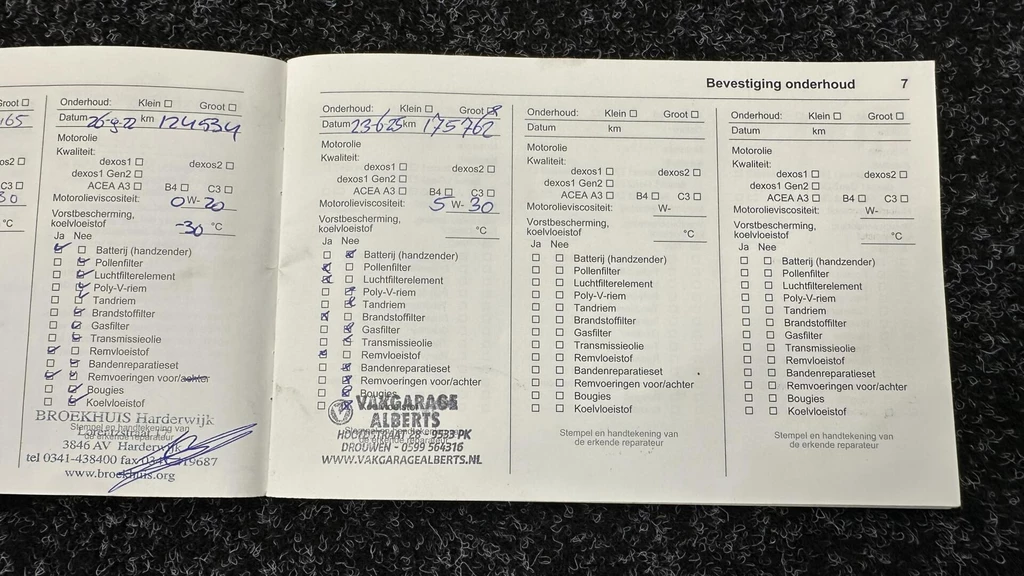 Bevestiging onderhoud 7
Groot
165
os2
C3
30
°C
Onderhoud: Klein Groot
Datum 26-9-22 km 124534
Motorolie
Kwaliteit:
dexos1 dexos2
dexos1 Gen2
ACEA A3 B4 C3
Motorolieviscositeit: 0 W- 20
Vorstbescherming,
koelvloeistof -30 °C
Ja Nee
Batterij (handzender)
Pollenfilter
Luchtfilterelement
Poly-V-riem
Tandriem
Brandstoffilter
Gasfilter
Transmissieolie
Remvloeistof
Bandenreparatieset
Remvoeringen voor/achter
Bougies
Koelvloeistof
BROEKHUIS Harderwijk
Stempel en handtekening van
de erkende reparateur
3846 AV Harderwijk
tel 0341-438400 fax 0341-419687
www.broekhuis.org
Onderhoud: Klein Groot
Datum 23-6-25 km 175762
Motorolie
Kwaliteit:
dexos1 dexos2
dexos1 Gen2
ACEA A3 B4 C3
Motorolieviscositeit: 5 W- 30
Vorstbescherming,
koelvloeistof °C
Ja Nee
Batterij (handzender)
Pollenfilter
Luchtfilterelement
Poly-V-riem
Tandriem
Brandstoffilter
Gasfilter
Transmissieolie
Remvloeistof
Bandenreparatieset
Remvoeringen voor/achter
Bougies
Koelvloeistof
VAKGARAGE
ALBERTS
Stempel en handtekening van
HOOFDSTRAAT 28 - 9533 PK
de erkende reparateur
DROUWEN - 0599 564316
WWW.VAKGARAGEALBERTS.NL
Onderhoud: Klein Groot
Datum km
Motorolie
Kwaliteit:
dexos1 dexos2
dexos1 Gen2
ACEA A3 B4 C3
Motorolieviscositeit: W-
Vorstbescherming,
koelvloeistof °C
Ja Nee
Batterij (handzender)
Pollenfilter
Luchtfilterelement
Poly-V-riem
Tandriem
Brandstoffilter
Gasfilter
Transmissieolie
Remvloeistof
Bandenreparatieset
Remvoeringen voor/achter
Bougies
Koelvloeistof
Stempel en handtekening van
de erkende reparateur
Onderhoud: Klein Groot
Datum km
Motorolie
Kwaliteit:
dexos1 dexos2
dexos1 Gen2
ACEA A3 B4 C3
Motorolieviscositeit: W-
Vorstbescherming,
koelvloeistof °C
Ja Nee
Batterij (handzender)
Pollenfilter
Luchtfilterelement
Poly-V-riem
Tandriem
Brandstoffilter
Gasfilter
Transmissieolie
Remvloeistof
Bandenreparatieset
Remvoeringen voor/achter
Bougies
Koelvloeistof
Stempel en handtekening van
de erkende reparateur